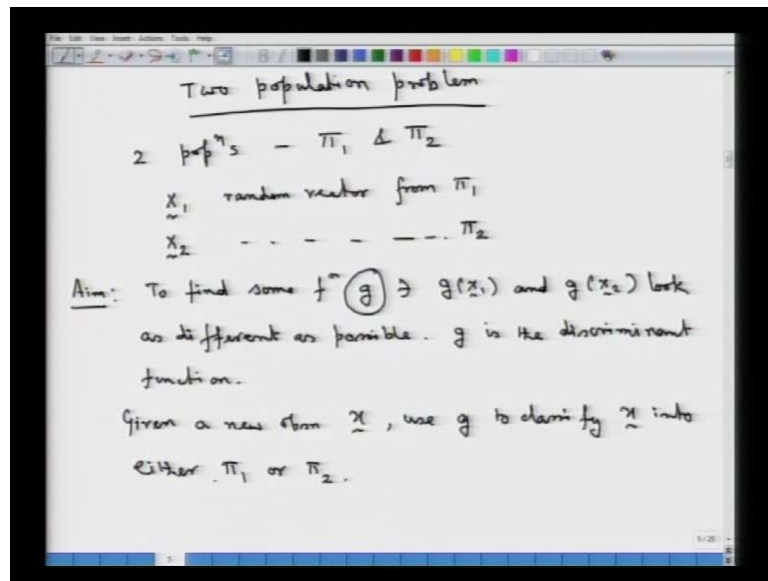 File Edit View Insert Actions Tools Help
Two population problem
2 popⁿs - π₁ & π₂
X₁ random vector from π₁
X₂ - - - - - - - π₂
Aim: To find some fⁿ g ∋ g(x₁) and g(x₂) look
as different as possible. g is the discriminant
function.
Given a new obsn x, use g to classify x into
either π₁ or π₂.